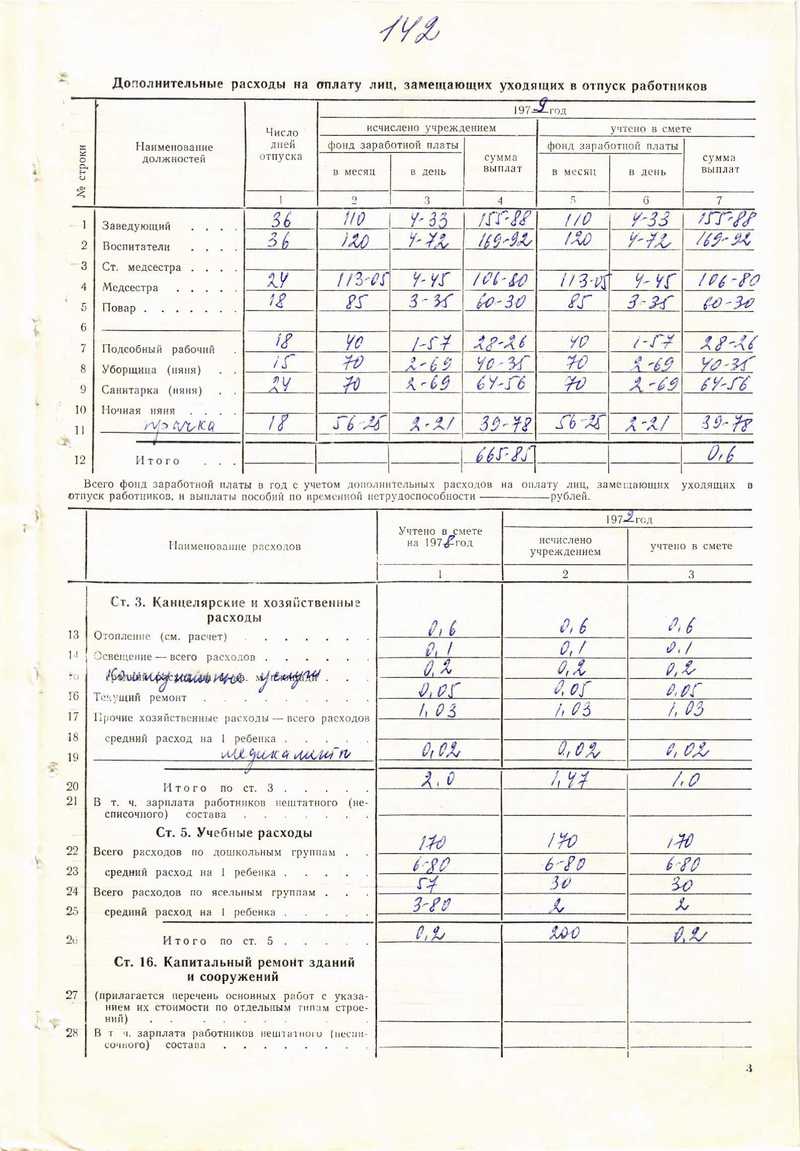 142
Дополнительные расходы на оплату лиц, замещающих уходящих в отпуск работников
№ строки
Наименование должностей
Число дней отпуска
1979 год
исчислено учреждением
учтено в смете
фонд заработной платы
сумма выплат
фонд заработной платы
сумма выплат
в месяц
в день
в месяц
в день
1 2 3 4 5 6 7
1 Заведующий . . . . 36 110 4-33 155-88 110 4-33 155-88
2 Воспитатели . . . 36 120 4-72 169-92 120 4-72 169-92
3 Ст. медсестра . . . .
4 Медсестра . . . . . 24 113-05 4-45 106-80 113-05 4-45 106-80
5 Повар . . . . . . . 18 85 3-35 60-30 85 3-35 60-30
6
7 Подсобный рабочий . 18 40 1-57 28-26 40 1-57 28-26
8 Уборщица (няня) . . 15 70 2-69 40-35 70 2-69 40-35
9 Санитарка (няня) . . 24 70 2-69 64-56 70 2-69 64-56
10 Ночная няня . . . .
11 прачка 18 56-25 2-21 39-78 56-25 2-21 39-78
12 Итого . . . 665-85 0,6
Всего фонд заработной платы в год с учетом дополнительных расходов на оплату лиц, замещающих уходящих в
отпуск работников, и выплаты пособий по временной нетрудоспособности ———— рублей.
Наименование расходов
Учтено в смете на 1978 год
1979 год
исчислено учреждением
учтено в смете
1 2 3
Ст. 3. Канцелярские и хозяйственные
расходы
13 Отопление (см. расчет) . . . . . . . 0,6 0,6 0,6
14 Освещение — всего расходов . . . . . . 0,1 0,1 0,1
Коммунальные услуги . . . 0,2 0,2 0,2
16 Текущий ремонт . . . . . . . . . 0,05 0,05 0,05
17 Прочие хозяйственные расходы — всего расходов 1,03 1,03 1,03
18 средний расход на 1 ребенка . . . . .
19 0,02 0,02 0,02
20 Итого по ст. 3 . . . . . 2,0 1,47 1,0
21 В т. ч. зарплата работников нештатного (не-
списочного) состава . . . . . . .
Ст. 5. Учебные расходы
22 Всего расходов по дошкольным группам . . 170 170 170
23 средний расход на 1 ребенка . . . . . 6-80 6-80 6-80
24 Всего расходов по ясельным группам . . . 57 30 30
25 средний расход на 1 ребенка . . . . . 3-80 2 2
26 Итого по ст. 5 . . . . . 0,2 200 0,2
Ст. 16. Капитальный ремонт зданий
и сооружений
27 (прилагается перечень основных работ с указа-
нием их стоимости по отдельным типам строе-
ний) . . . . . . . . . .
28 В т ч. зарплата работников нештатного (неспи-
сочного) состава . . . . . . . .
3